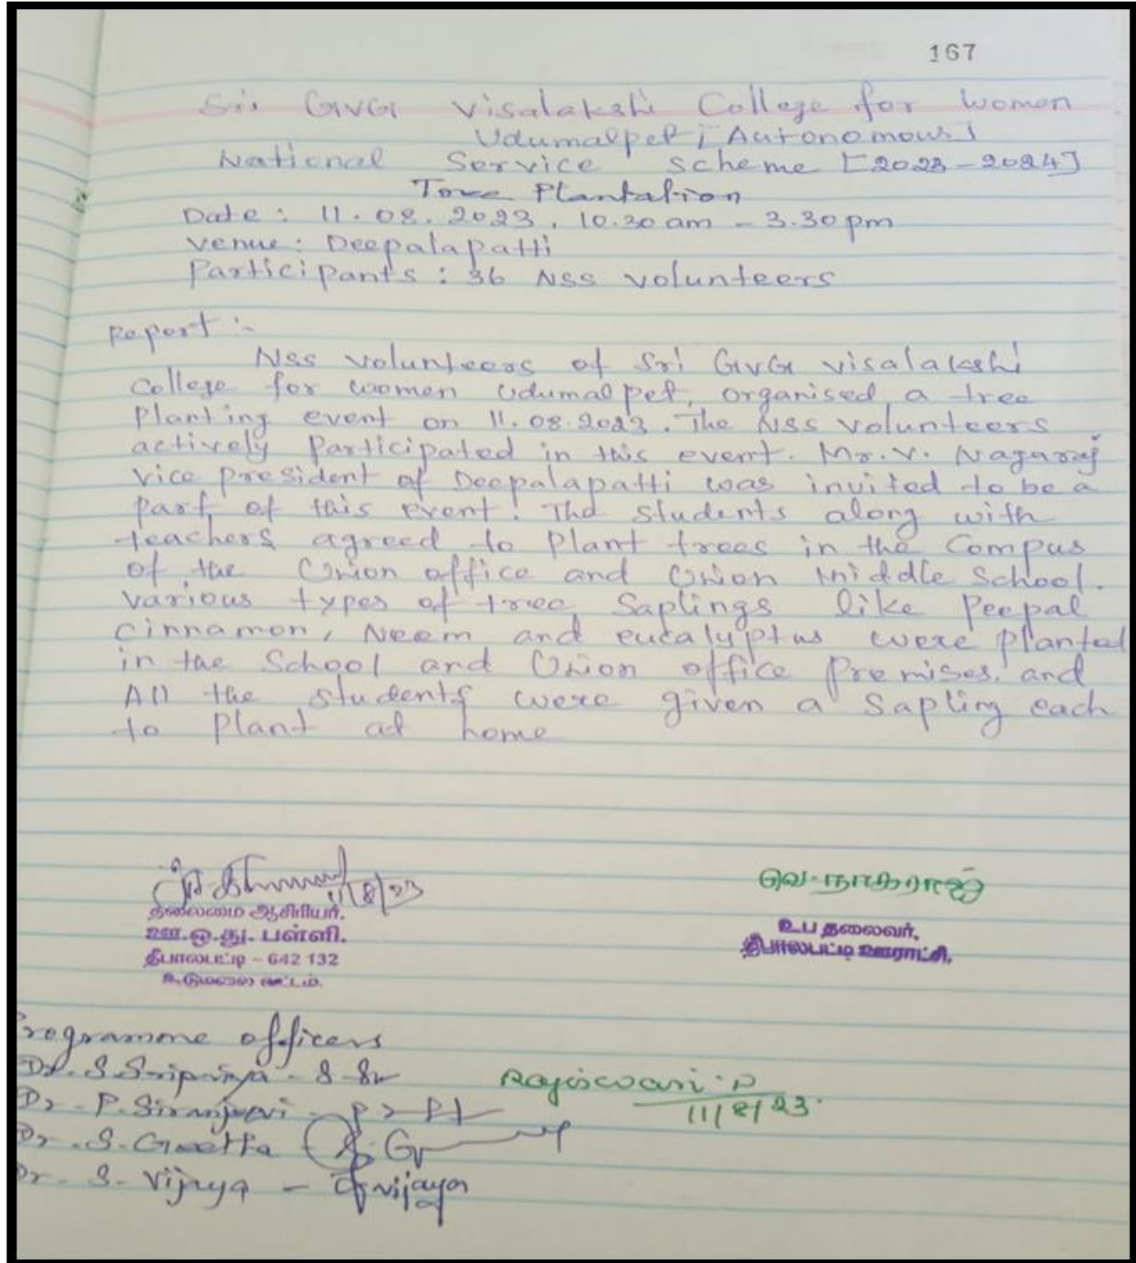 167
Sri GVG Visalakshi College for Women
Udumalpet [Autonomous]
National Service Scheme [2023-2024]
Tree Plantation
Date : 11.08.2023, 10.30 am - 3.30 pm
Venue : Deepalapatti
Participants : 36 NSS volunteers
Report :-
NSS volunteers of Sri GVG visalakshi
College for women Udumalpet, organised a tree
Planting event on 11.08.2023. The NSS volunteers
actively Participated in this event. Mr. V. Nagaraj
Vice president of Deepalapatti was invited to be a
Part of this event! The Students along with
teachers agreed to Plant trees in the Compus
of the Union office and Union Middle School.
Various types of tree Saplings like Peepal
Cinnamon, Neem and eucalyptus were planted
in the School and Union office Premises. and
All the students were given a Sapling each
to Plant at home
11/8/23
தலைமை ஆசிரியர்.
ஊ.ஒ.து. பள்ளி.
தீபாலபட்டி - 642 132
உடுமலை வட்டம்.
வெ.நாகராஜ்
உப தலைவர்,
தீபாலபட்டி ஊராட்சி.
Programme officers
Dr. S. Sripriya - S. Sr
Dr. P. Siranjeevi -
Dr. S. Geetha
Dr. S. Vijaya - S. vijaya
Rajeswari. P
11/8/23